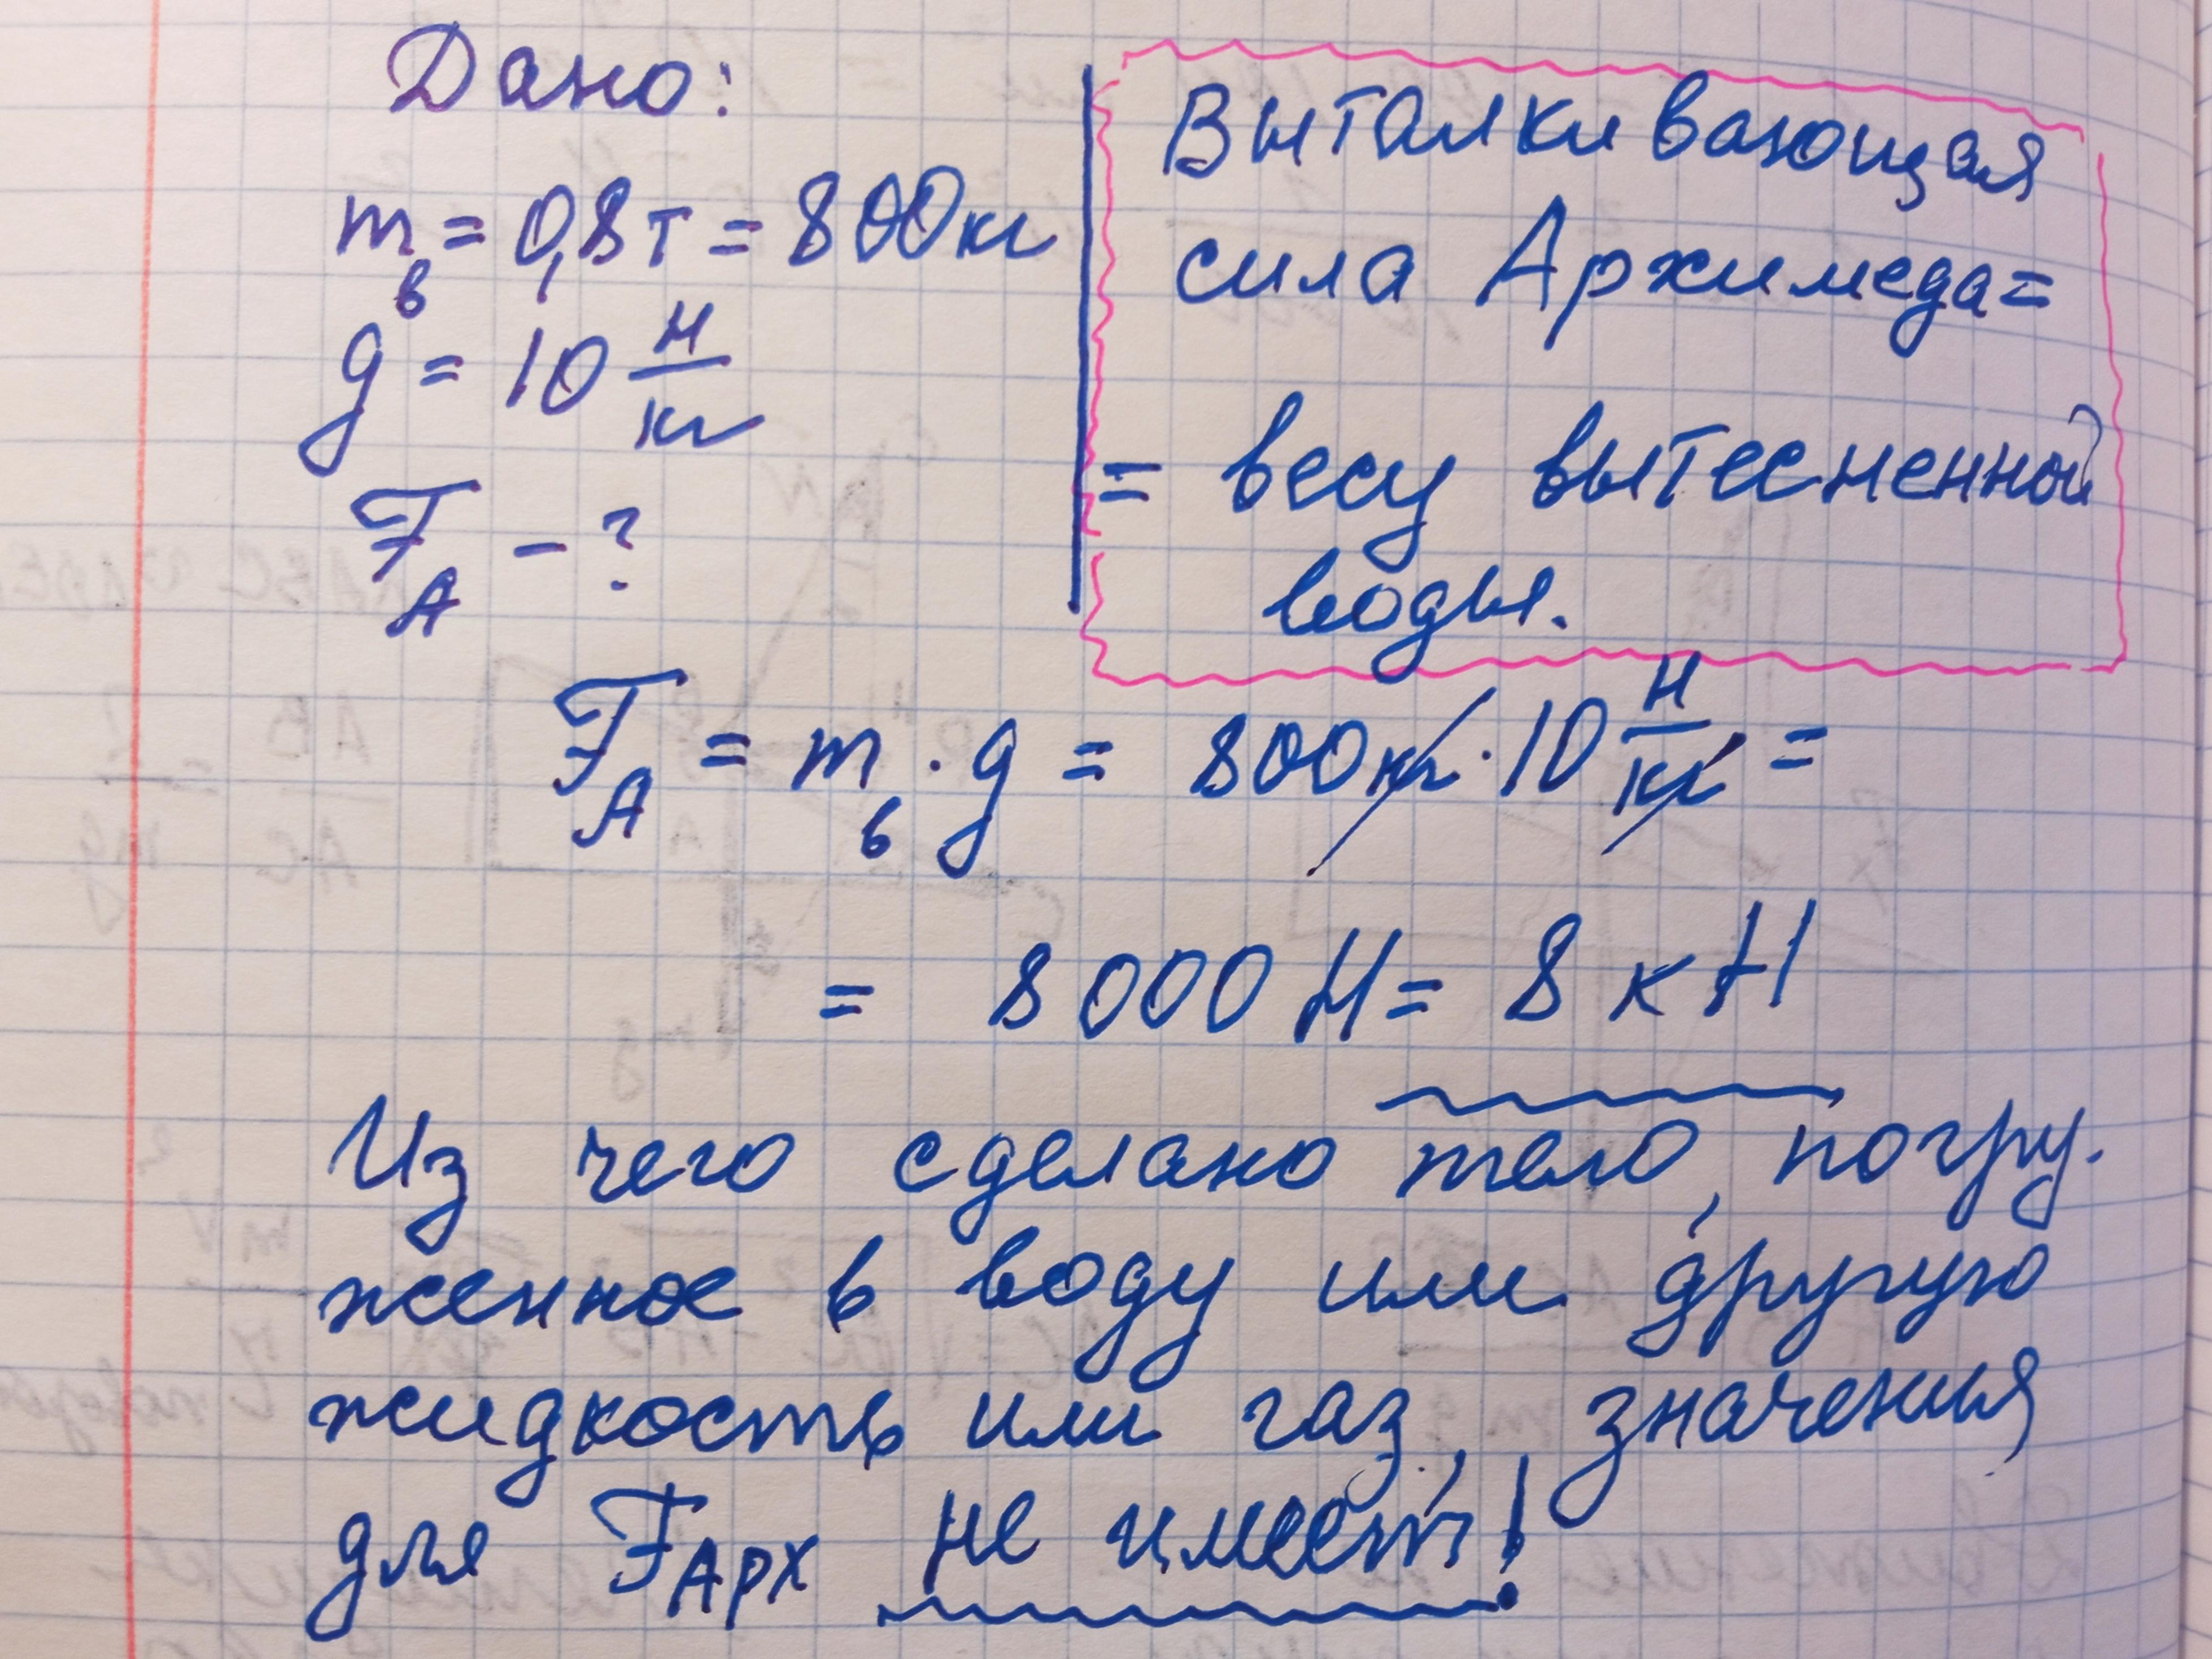 Дано:
m в = 0,8 т = 800 кг
g = 10 Н/кг
F А - ?
Выталкивающая
сила Архимеда =
= весу вытесненной
воды.
F А = m в · g = 800 кг · 10 Н/кг =
= 8000 Н = 8 кН
Из чего сделано тело, погру-
женное в воду или другую
жидкость или газ, значения
для F Арх не имеет!